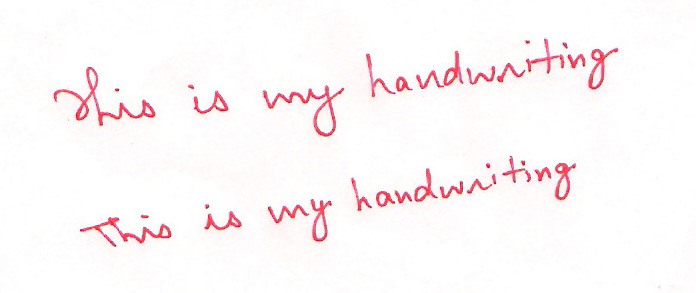 This is my handwriting
This is my handwriting